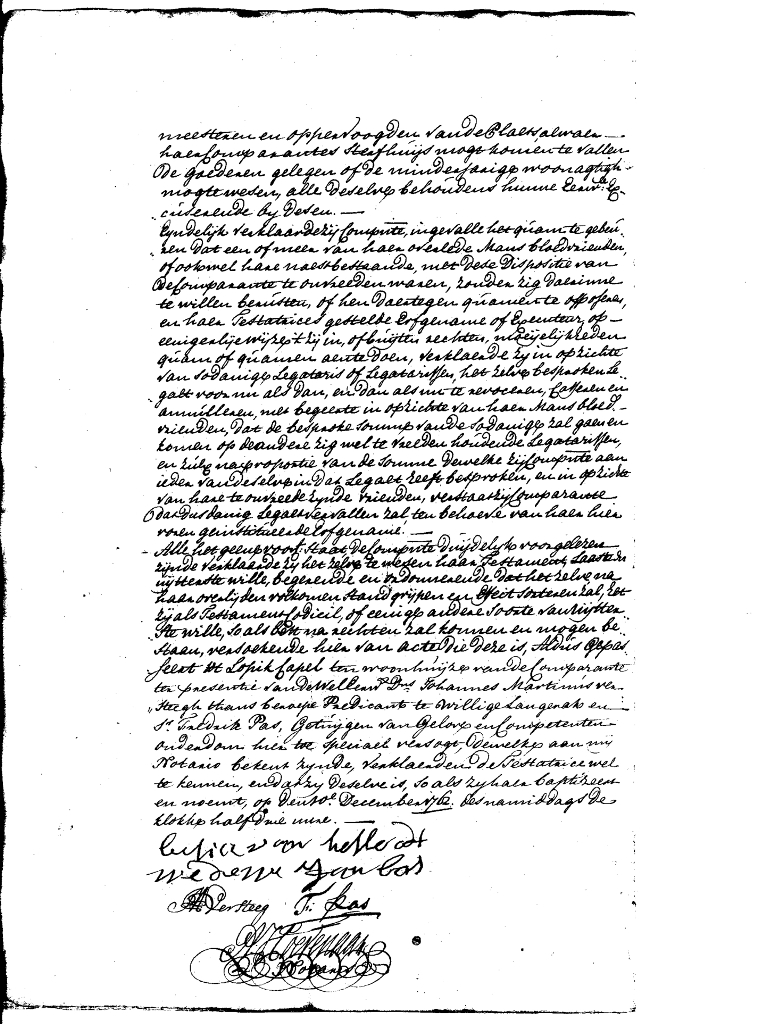 meesteren en oppervoogden van de Plaets alwaer
haer Comparantes sterfhuijs mogt komen te vallen
de goederen gelegen of de minderjarige woonagtigh
mogte wesen, alle deselve behoudens hunne Eerw: Ex-
cuserende by desen.
Eyndelijk verklaarde zij Comp:nte, ingevalle het quam te gebeu-
ren dat een of meer van haer overlede Mans bloedvrienden,
of ook wel hare naestbestaande, met dese dispositie van
de Comparante te onvreeden waren, zonder zig daerinne
te willen berusten, of hen daertegen quamen te opposeren,
en haer Testatrices gestelde Erfgename of Executeur, op
eenigerlije wijze 't zij in, of buijten rechten, moeijelijkheden
quam of quamen aen te doen, verklaerde zij in opzichte
van sodanige Legataris of Legatarissen, het zelve besproken Le-
gaet voor nu als dan, en dan als nu te revoceren, Casseren en
annulleren, met begeerte in opzichte van haer Mans bloed-
vrienden, dat de besproke somme van de sodanige zal gaen en
komen op de andere zig wel te vreeden houdende Legatarissen,
en zulx na proportie van de Somme dewelke zij Comp:nte aan
ieder van deselve in dat Legaet heeft besproken, en in opzichte
van hare te onvreede zynde vrienden, verstaat zij Comparante
dat dusdanig Legaet vervallen zal ten behoeve van haer hier
voren geinstitueerde Erfgename.
Alle het geene voors: staat de Comp:nte duijdelyk voorgelezen
zijnde verklaarde zy het zelve te wesen haar Testament, Laaste en
uijtterste wille, begerende en ordonnerende dat het zelve na
haar overlijden volkomen stand grijpen en Effect sorteren zal, het
zij als Testament, Codicil, of eenige andere soorte van uijtter-
ste wille, so als best na rechten zal konnen en mogen be-
staen, versoekende hier van acte die deze is, Aldus gepas-
seert tot Lopik Capel ten woonhuijze van de Comparante
ten presentie van de WelEerw: Ds Johannes Martinus ver-
steegh thans beroepe Predicant te Willige Langerak en
Sr Fredrik Pas, Getuijgen van Gelove en Competenten
ouderdom hier toe speciael versogt, dewelke aan mij
Notaris bekent zynde, verklaerden de Testatrice wel
te kennen, en dat zij deselve is, so als zij haer baptizeert
en noemt, op den 10e December 1762 des namiddags de
klokke half drie uure.
wedewe Jan bos
Versteeg Fr: Pas
Notaris